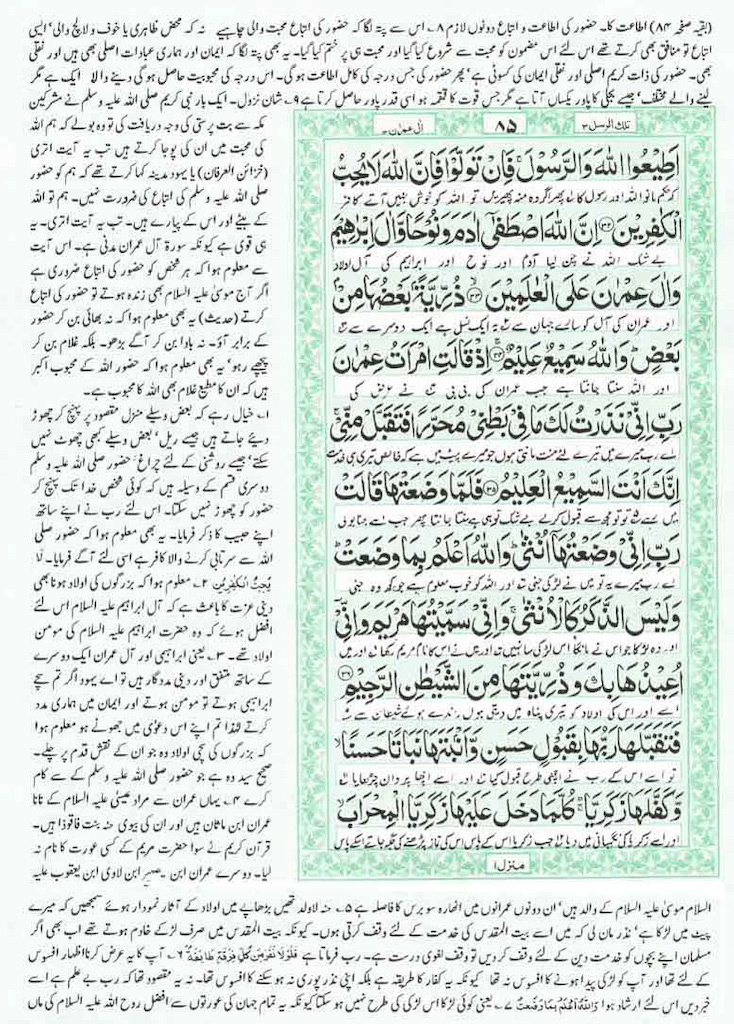 (بقیہ صفحہ ۸۴) اطاعت کا۔ حضور کی اطاعت و اتباع دونوں لازم ۸۔ اس سے پتہ لگا کہ حضور کی اتباع محبت والی چاہیے نہ کہ محض ظاہری یا خوف و لالچ والی' ایسی
اتباع تو منافق بھی کرتے تھے اس لئے اس مضمون کو محبت سے شروع کیا گیا اور محبت ہی پر ختم کیا گیا۔ یہ بھی پتہ لگا کہ ایمان اور ہماری عبادات اصلی بھی ہیں اور نقلی
بھی۔ حضور کی ذات کریم اصلی اور نقلی ایمان کی کسوٹی ہے' پھر حضور کی جس درجہ کی کامل اطاعت ہوگی۔ اس درجہ کی محبوبیت حاصل ہوگی دینے والا ایک ہے مگر
لینے والے مختلف' جیسے بجلی کا پاور یکساں آتا ہے مگر جس قوت کا قمقمہ ہو اسی قدر پاور حاصل کرتا ہے ۹۔ شان نزول۔ ایک بار نبی کریم صلی اللہ علیہ وسلم نے مشرکین
تلك الرسل ۳
۸۵
اٰل عمرٰن ۳
اَطِيْعُوا اللّٰهَ وَالرَّسُوْلَ ۚ فَاِنْ تَوَلَّوْا فَاِنَّ اللّٰهَ لَا يُحِبُّ
کہ حکم مانو اللہ اور رسول کا پھر اگر وہ منہ پھیریں تو اللہ کو خوش نہیں آتے کافر
الْكٰفِرِيْنَ ۝۳۲ اِنَّ اللّٰهَ اصْطَفٰٓى اٰدَمَ وَنُوْحًا وَّاٰلَ اِبْرٰهِيْمَ
بے شک اللہ نے چن لیا آدم اور نوح اور ابراہیم کی آل اولاد
وَاٰلَ عِمْرٰنَ عَلَى الْعٰلَمِيْنَ ۝۳۳ ذُرِّيَّةًۢ بَعْضُهَا مِنْۢ
اور عمران کی آل کو سارے جہان سے یہ ایک نسل ہے ایک دوسرے سے
بَعْضٍ ؕ وَاللّٰهُ سَمِيْعٌ عَلِيْمٌ ۝۳۴ اِذْ قَالَتِ امْرَاَتُ عِمْرٰنَ
اور اللہ سنتا جانتا ہے جب عمران کی بی بی نے عرض کی
رَبِّ اِنِّيْ نَذَرْتُ لَكَ مَا فِيْ بَطْنِيْ مُحَرَّرًا فَتَقَبَّلْ مِنِّيْ ۚ
اے رب میرے میں تیرے لئے منت مانتی ہوں جو میرے پیٹ میں ہے کہ خالص تیری ہی خدمت
اِنَّكَ اَنْتَ السَّمِيْعُ الْعَلِيْمُ ۝۳۵ فَلَمَّا وَضَعَتْهَا قَالَتْ
میں رہے تو تو مجھ سے قبول کر لے بے شک تو ہی ہے سنتا جانتا پھر جب اسے جنا بولی
رَبِّ اِنِّيْ وَضَعْتُهَاۤ اُنْثٰى ؕ وَاللّٰهُ اَعْلَمُ بِمَا وَضَعَتْ ؕ
اے رب میرے یہ تو میں نے لڑکی جنی اور اللہ کو خوب معلوم ہے جو کچھ وہ جنی
وَلَيْسَ الذَّكَرُ كَالْاُنْثٰى ۚ وَاِنِّيْ سَمَّيْتُهَا مَرْيَمَ وَاِنِّيْۤ
اور وہ لڑکا جو اس نے مانگا اس لڑکی سا نہیں اور میں نے اس کا نام مریم رکھا اور میں
اُعِيْذُهَا بِكَ وَذُرِّيَّتَهَا مِنَ الشَّيْطٰنِ الرَّجِيْمِ ۝۳۶
اسے اور اس کی اولاد کو تیری پناہ میں دیتی ہوں راندے ہوئے شیطان سے
فَتَقَبَّلَهَا رَبُّهَا بِقَبُوْلٍ حَسَنٍ وَّاَنْۢبَتَهَا نَبَاتًا حَسَنًا ۙ
تو اسے اس کے رب نے اچھی طرح قبول کیا اور اسے اچھا پروان چڑھایا
وَّكَفَّلَهَا زَكَرِيَّا ؕ كُلَّمَا دَخَلَ عَلَيْهَا زَكَرِيَّا الْمِحْرَابَ ۙ
اور اسے زکریا کی نگہبانی میں دیا جب زکریا اس کے پاس اس کی نماز پڑھنے کی جگہ جاتے اسکے پاس
منزل ۱
مکہ سے بت پرستی کی وجہ دریافت کی تو وہ بولے کہ ہم اللہ
کی محبت میں ان کی پوجا کرتے ہیں تب یہ آیت اتری
(خزائن العرفان) یا یہود مدینہ کہا کرتے تھے کہ ہم کو حضور
صلی اللہ علیہ وسلم کی اتباع کی ضرورت نہیں۔ ہم تو اللہ
کے بیٹے اور اس کے پیارے ہیں۔ تب یہ آیت اتری۔ یہ
ہی قوی ہے کیونکہ سورۃ آل عمران مدنی ہے۔ اس آیت
سے معلوم ہوا کہ ہر شخص کو حضور کی اتباع ضروری ہے
اگر آج موسیٰ علیہ السلام بھی زندہ ہوتے تو حضور کی اتباع
کرتے (حدیث) یہ بھی معلوم ہوا کہ نہ بھائی بن کر حضور
کے برابر آؤ۔ نہ باوا بن کر آگے بڑھو۔ بلکہ غلام بن کر
پیچھے رہو' یہ بھی معلوم ہوا کہ حضور اللہ کے محبوب اکبر
ہیں کہ ان کا مطیع غلام بھی اللہ کا محبوب ہے۔
۱۔ خیال رہے کہ بعض وسیلے منزل مقصود پر پہنچ کر چھوڑ
دیئے جاتے ہیں جیسے ریل' بعض وسیلے کبھی چھوٹ نہیں
سکتے' جیسے روشنی کے لئے چراغ' حضور صلی اللہ علیہ وسلم
دوسری قسم کے وسیلہ ہیں کہ کوئی شخص خدا تک پہنچ کر
حضور کو چھوڑ نہیں سکتا۔ اس لئے رب نے اپنے ساتھ
اپنے حبیب کا ذکر فرمایا۔ یہ بھی معلوم ہوا کہ حضور صلی
اللہ سے سرتابی کرنے والا کافر ہے اسی لئے آگے فرمایا۔ لَا
يُحِبُّ الْكٰفِرِيْنَ ۲۔ معلوم ہوا کہ بزرگوں کی اولاد ہونا بھی
دینی عزت کا باعث ہے کہ آل ابراہیم علیہ السلام اس لئے
افضل ہوئے کہ وہ حضرت ابراہیم علیہ السلام کی مومن
اولاد تھے۔ ۳۔ یعنی ابراہیمی اور آل عمران ایک دوسرے
کے ساتھ متفق اور دینی مددگار ہیں تو اے یہود اگر تم سچے
ابراہیمی ہوتے تو مومن ہوتے اور ایمان میں ہماری مدد
کرتے لہٰذا تم اپنے اس دعویٰ میں جھوٹے ہو معلوم ہوا
کہ بزرگوں کی سچی اولاد وہ جو ان کے نقش قدم پر چلے۔
صحیح سید وہ ہے جو حضور صلی اللہ علیہ وسلم کے سے کام
کرے ۴۔ یہاں عمران سے مراد عیسیٰ علیہ السلام کے نانا
عمران ابن ماثان ہیں اور ان کی بیوی حنہ بنت فاقوذا ہیں۔
قرآن کریم نے سوا حضرت مریم کے کسی عورت کا نام نہ
لیا۔ دوسرے عمران ابن یصہر ابن لاوی ابن یعقوب علیہ
السلام موسیٰ علیہ السلام کے والد ہیں' ان دونوں عمرانوں میں اٹھارہ سو برس کا فاصلہ ہے ۵۔ حنہ لا ولد تھیں بڑھاپے میں اولاد کے آثار نمودار ہوئے سمجھیں کہ میرے
پیٹ میں لڑکا ہے' نذر مان لی کہ میں اسے بیت المقدس کی خدمت کے لئے وقف کرتی ہوں۔ کیونکہ بیت المقدس میں صرف لڑکے خادم ہوتے تھے اب بھی اگر
مسلمان اپنے بچوں کو خدمت دین کے لئے وقف کر دیں تو وقف اقوی درست ہے۔ رب فرماتا ہے فَلَوْلَا نَفَرَ مِنْ كُلِّ فِرْقَةٍ طَآئِفَةٌ ۶۔ آپ کا یہ عرض کرنا اظہار افسوس
کے لئے تھا اور آپ کو لڑکی پیدا ہونے کا افسوس نہ تھا کیونکہ یہ کفار کا طریقہ ہے بلکہ اپنی نذر پوری نہ ہو سکنے کا افسوس تھا۔ نہ یہ مقصود تھا کہ رب بے علم ہے اسے
خبر دیں اس لئے ارشاد ہوا وَاللّٰهُ اَعْلَمُ بِمَا وَضَعَتْ ۷۔ یعنی کوئی لڑکا اس لڑکی کی طرح نہیں ہو سکتا کیونکہ یہ تمام جہان کی عورتوں سے افضل روح اللہ علیہ السلام کی ماں